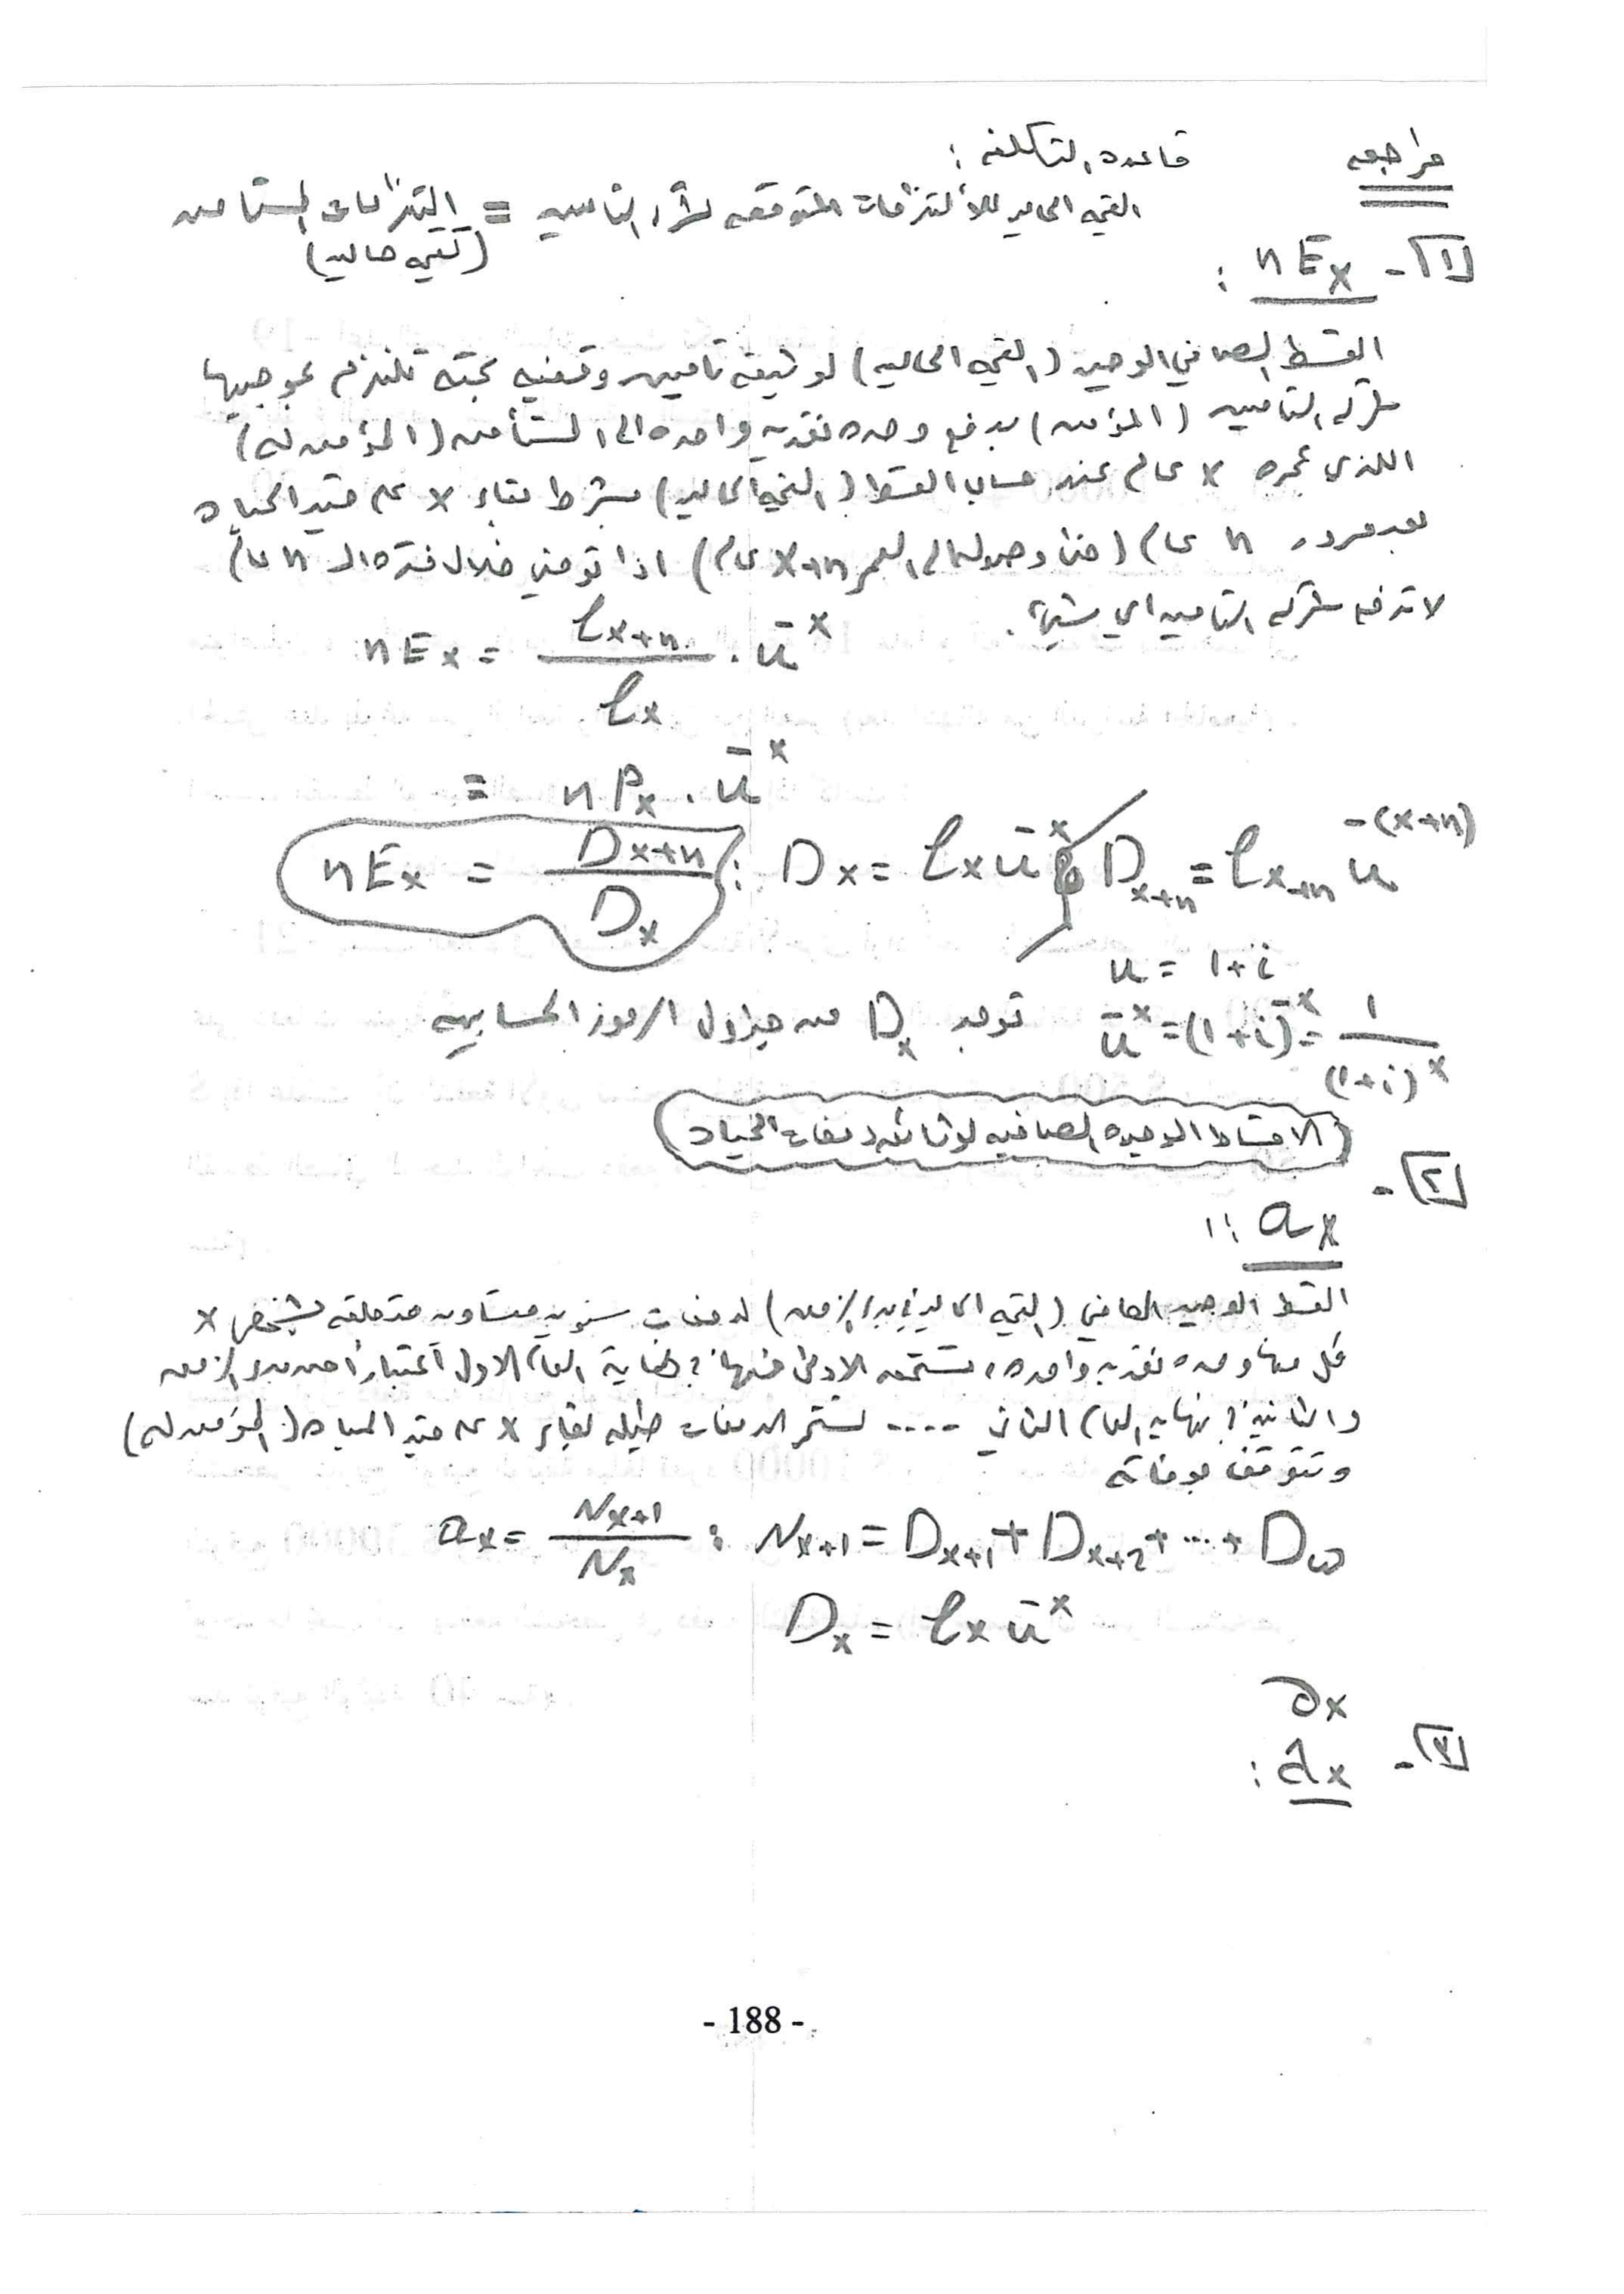 مراجعه
قاعدة التكلفه :
القيمه الحاليه للالتزامات المتوقعه لشركة التأمين = التزامات المستأمن
(كقيمه حاليه)
[1] - nEx :
القسط الصافي الوحيد (القيمه الحاليه) لوثيقة تأمين وقفيه بحته تلتزم بموجبها
شركه التأمين (المؤمن) بدفع وحده نقديه واحده الى المستأمن (المؤمن له)
اللذي عمره x عام عند حساب القسط (القيمه الحاليه) بشرط بقاء x على قيد الحياه
بعد مرور n عام (حتى وصوله الى العمر x+n عام) اذا توفي خلال فتره الـ n عام
لا تدفع شركه التأمين اي شيء.
nEx = ℓx+n / ℓx . u^-x
= nPx . u^-x
nEx = Dx+n / Dx : Dx = ℓx u^-x و Dx+n = ℓx+n u^-(x+n)
u = 1+i
u^-x = (1+i)^-x = 1 / (1+i)^x
توجد Dx من جداول الرموز الحسابيه
(الاقساط الوحيده الصافيه لوثائق دفعات الحياة)
[2] -
ax :
القسط الوحيد الصافي (القيمه الحاليه في بدء الزمن) لدفعات سنويه متساويه متعلقه بشخص x
كل منها وحده نقديه واحده، تستحق الاولى منها في نهاية العام الاول اعتباراً من بدء الزمن
والثانيه في نهايه العام الثاني .... تستمر الدفعات طيله بقاء x على قيد الحياه (المؤمن له)
وتتوقف بوفاته
ax = Nx+1 / Nx : Nx+1 = Dx+1 + Dx+2 + ... + Dω
Dx = ℓx u^-x
ax
[3] - äx :
- 188 -